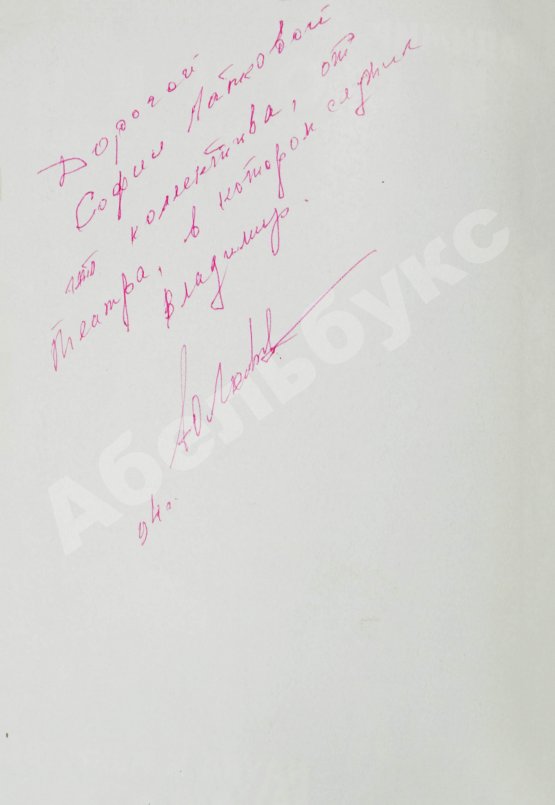 Дорогой
Софии Лапковой
от коллектива, от
театра, в котором служил
Владимир.
94г.
Абельбукс